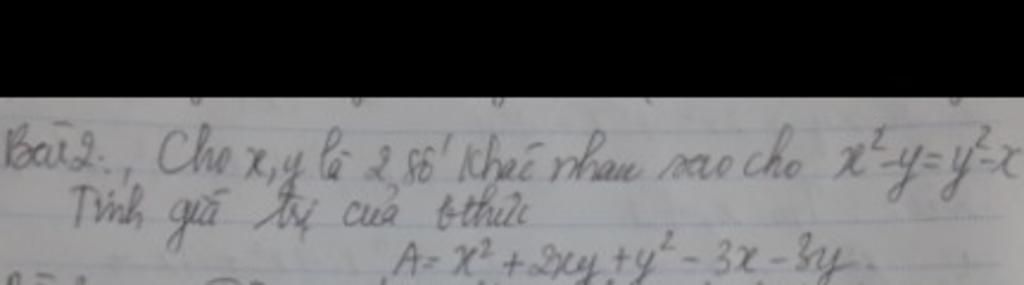 Bài 2., Cho x, y là 2 số khác nhau sao cho x²-y=y²-x
Tính giá trị của bthức
A= x² + 2xy + y² - 3x - 3y.